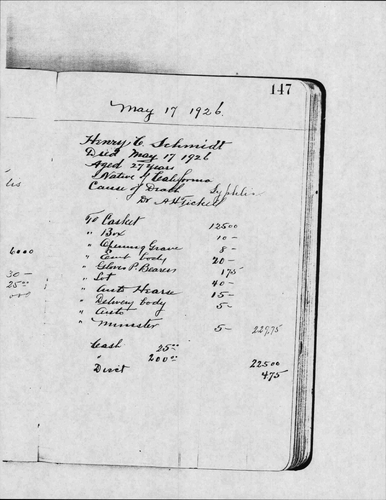 147
May 17 1926
Henry C. Schmidt
Died May 17 1926
Aged 27 years
Native of California
Cause of Death Syphilis
Dr A H Tickell
To Casket 125 00
" Box 10 -
" Opening Grave 8 -
" body 20 -
" Gloves P. Bearers 1 75
" Lot 40 -
" Auto Hearse 15 -
" Delivery body 5 -
" Auto
" Minister 5 - 229,75
Cash 25 00
" 200 00 225 00
4 75
60 00
30 -
25 00